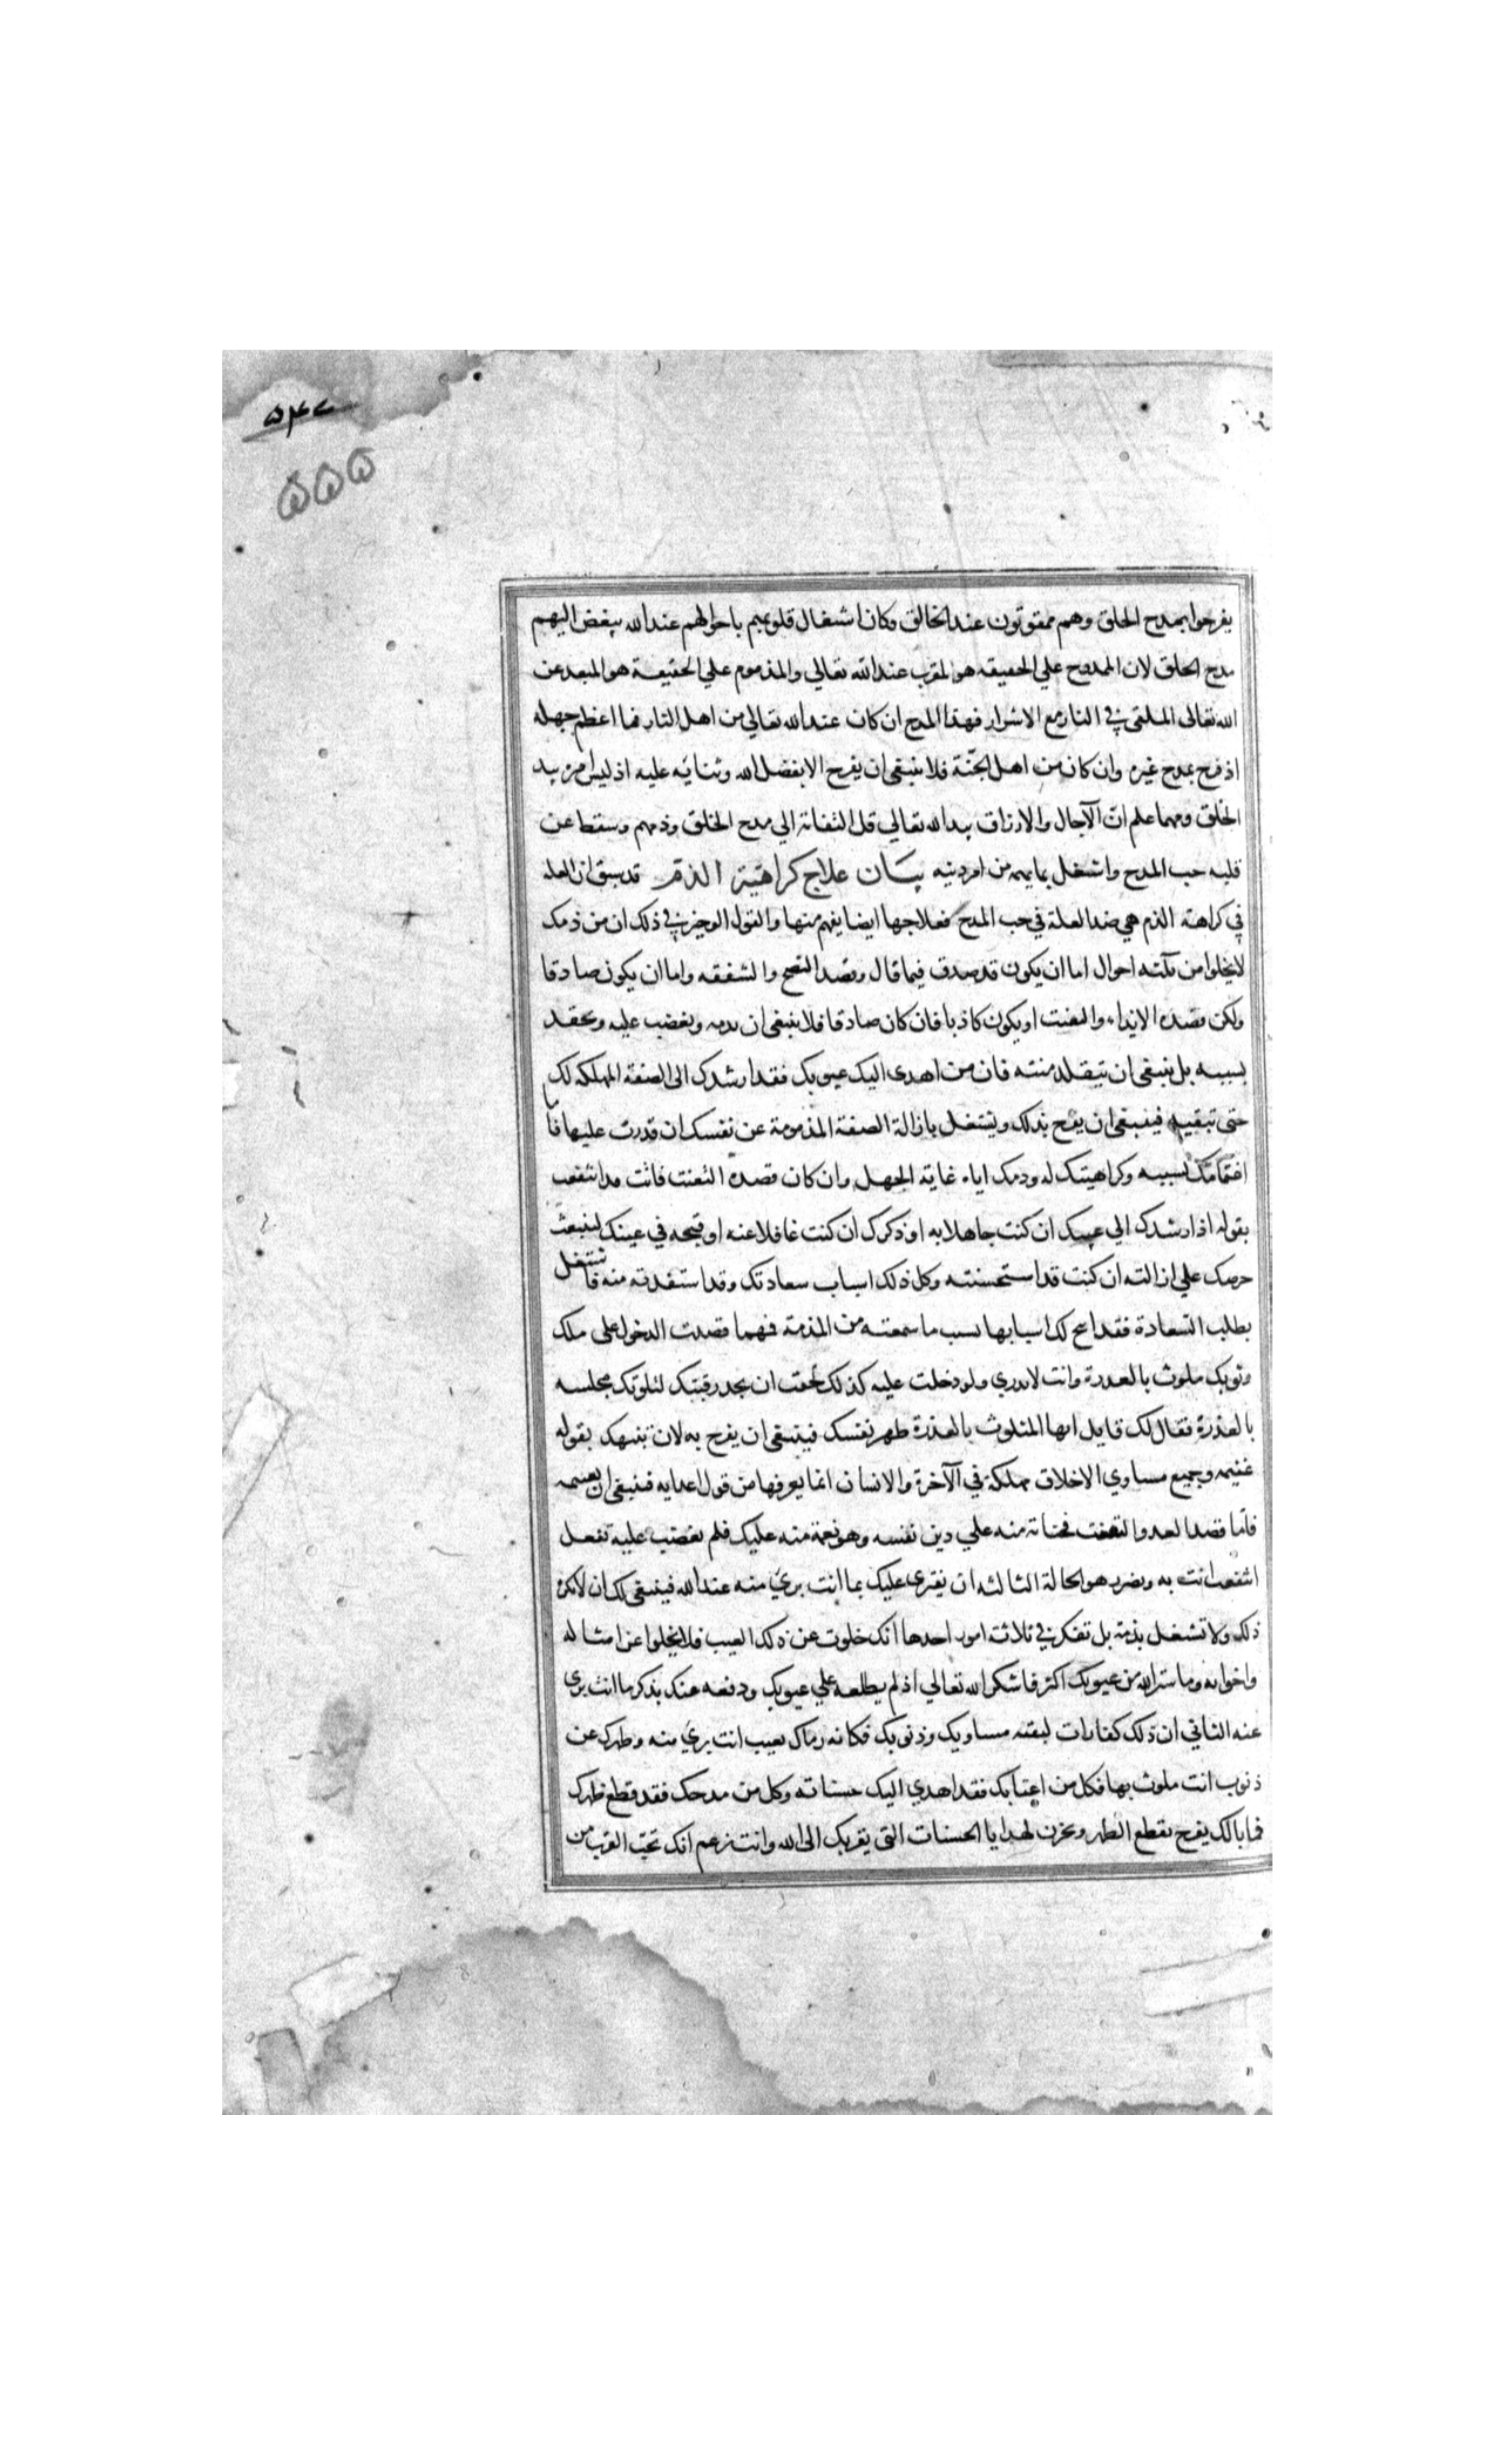 ۵۴۷
۵۵۵
يفرحوا بمدح الخلق وهم ممقوتون عند الخالق وكان اشتغال قلوبهم باحوالهم عند الله يبغض اليهم
مدح الخلق لان الممدوح علي الحقيقه هو المقرب عند الله تعالي والمذموم علي الحقيقة هو المبعد عن
الله تعالى الملقى في النار مع الاشرار فهذا المدح ان كان عند الله تعالي من اهل النار فما اعظم جهله
اذ فرح بمدح غيره وان كان من اهل الجنّة فلا ينبغى ان يفرح الا بفضل الله وثنائه عليه اذ ليس امر بيد
الخلق ومهما علم ان الآجال والارزاق بيد الله تعالي قل التفاته الي مدح الخلق وذمهم وسقط عن
قلبه حب المدح واشتغل بما يهمه من امر دينه بيان علاج كراهية الذم قد سبق ان العله
في كراهته الذم هي ضد العلة في حب المدح فعلاجها ايضا يفهم منها والقول الوجيز في ذلك ان من ذمك
لا يخلوا من ثلثه احوال اما ان يكون قد صدق فيما قال وقصد النصح والشفقه واما ان يكون صادقا
ولكن قصده الايذاء والتعنت او يكون كاذبا فان كان صادقا فلا ينبغى ان تذمه وتغضب عليه وتحقد
بسببه بل ينبغى ان تتقلد منته فان من اهدى اليك عيوبك فقد ارشدك الى الصفة المهلكه لك
حتى تتقيها فينبغى ان تفرح بذلك وتشتغل بازالة الصفة المذمومة عن نفسك ان قدرت عليها فاما
اغتمامك بسببه وكراهيتك له وذمك اياه غاية الجهل وان كان قصده التعنت فانت قد انتفعت
بقوله اذ ارشدك الي عيبك ان كنت جاهلا به او ذكرك ان كنت غافلا عنه او قبحه في عينك لينبعث
حرصك علي ازالته ان كنت قد استحسنته وكل ذلك اسباب سعادتك وقد استفدته منه فاشتغل
بطلب السعادة فقد اتيح لك اسبابها بسبب ما سمعته من المذمة فمهما قصدت الدخول على ملك
وثوبك ملوث بالعذرة وانت لا تدري ولو دخلت عليه كذلك لخفت ان يجذ رقبتك لتلوثك مجلسه
بالعذرة فقال لك قايل ايها المتلوث بالعذرة طهر نفسك فينبغى ان يفرح به لان تنبيهك بقوله
غنيمه وجميع مساوي الاخلاق مهلكة في الآخرة والانسان انما يعرفها من قول اعدايه فينبغى ان يغتنمه
فاما قصد العدو التعنت فجناية منه علي دين نفسه وهو نعمة منه عليك فلم تغضب عليه بفعل
انتفعت انت به وتضرر هو الحالة الثالثه ان يفترى عليك بما انت بريء منه عند الله فينبغى لك ان لا تكره
ذلك ولا تشتغل بذمه بل تفكر في ثلاثة امور احدها انك خلوت عن ذلك العيب فلا يخلوا عن امثاله
واخواته وما ستر الله من عيوبك اكثر فاشكر الله تعالي اذ لم يطلعه علي عيوبك ودفعه عنك بذكر ما انت برى
عنه الثاني ان ذلك كفارات لبقيه مساويك وذنوبك فكانه رماك بعيب انت بريء منه وطهرك عن
ذنوب انت ملوث بها فكل من اغتابك فقد اهدي اليك حسناته وكل من مدحك فقد قطع ظهرك
فما بالك يفرح بقطع الظهر وتحزن لهدايا الحسنات التى تقربك الى الله وانت تزعم انك تحب القرب من